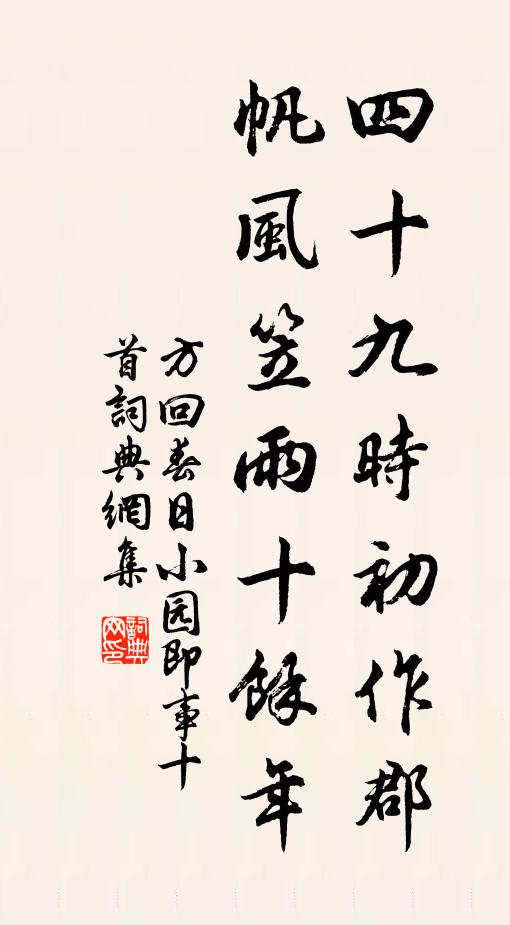 四十九時初作郡
帆風笠雨十餘年
方回春日小园即事十
首詞典網集
詞典
网印